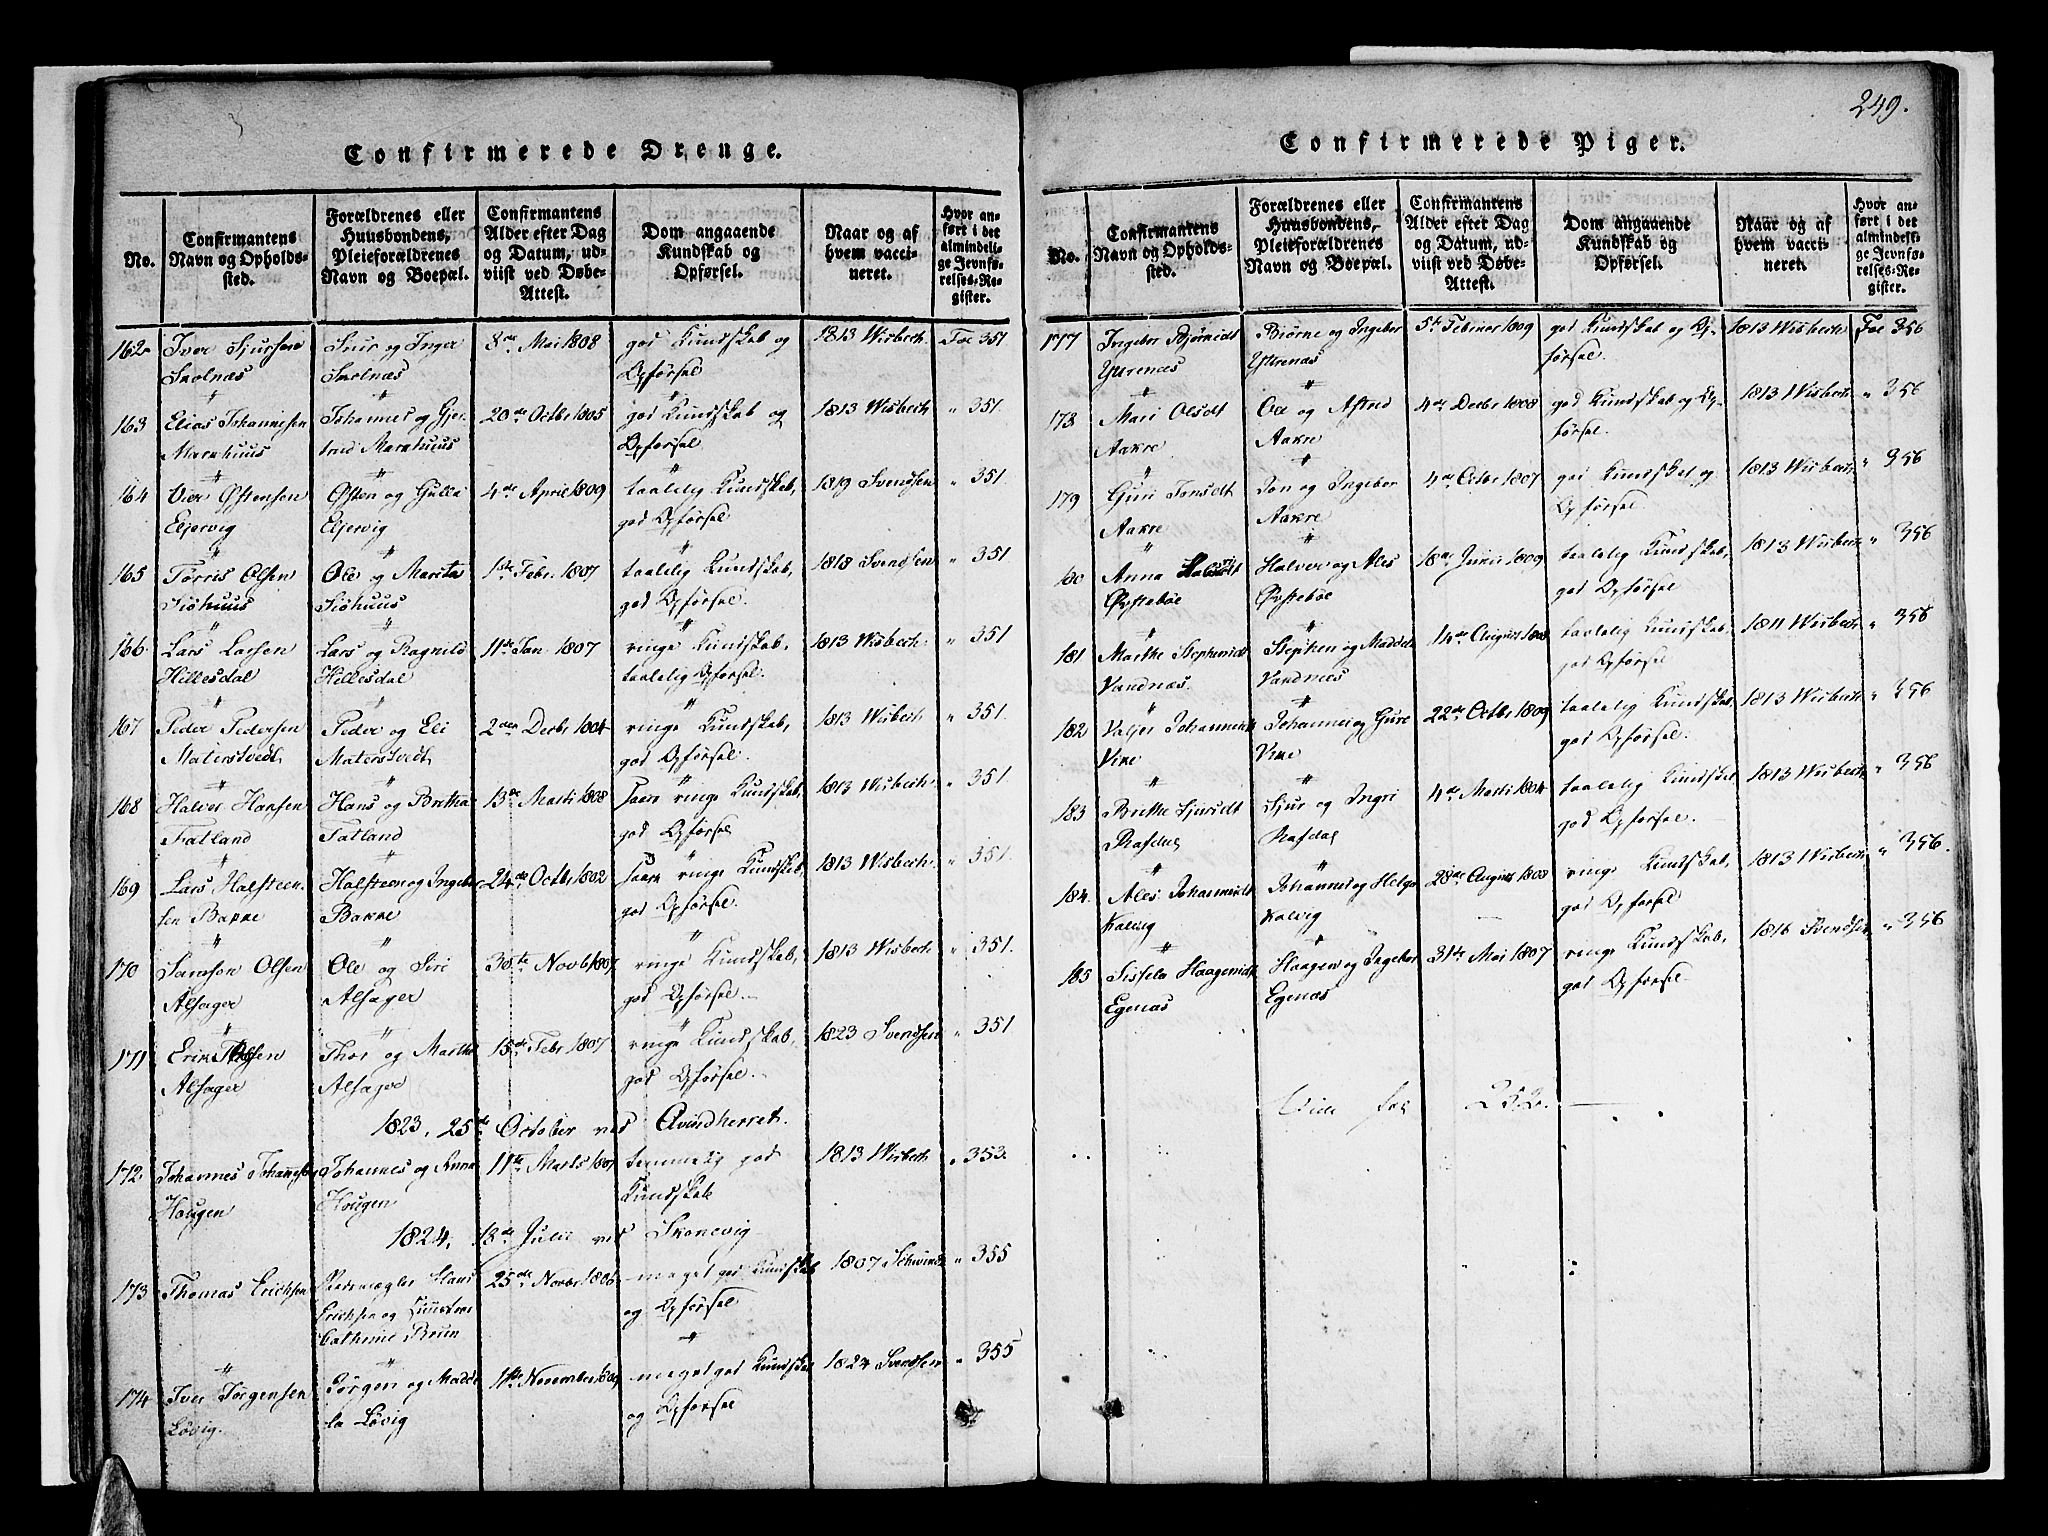 Confirmerede Drenge.
No.
Confirmantens
Navn og Opholds-
sted.
Forældrenes eller
Huusbondens,
Pleieforældrenes
Navn og Boepæl.
Confirmantens
Alder efter Dag
og Datum, ud-
viist ved Døbe-
Attest.
Dom angaaende
Kundskab og
Opførsel.
Naar og af
hvem vacci-
neret.
Hvor an-
ført i det
almindeli-
ge Jevnfø-
relses-Re-
gister.
162 Iver Sjursen Siur og Inger 8de Mai 1808 god Kundskab og 1813 Wisbech Fol 351
Opførsel
163 Elias Johannesen Johannes og Gjer- 20de Octbr 1805 god Kundskab og 1813 Wisbech " 351.
Markhuus trud Markhuus Opførsel
164 Østensen Østen og Gulla 4de April 1809 taalelig Kundskab, 1819 Svendsen " 351
god Opførsel
165 Torris Olsen Ole og Marita 1ste Febr. 1807 taalelig Kundskab, 1818 Svendsen " 351
Siøhuus Siøhuus god Opførsel.
166. Lars Larsen Lars og Ragnild 11te Jan. 1807 ringe Kundskab, 1813 Wisbech. " 351
Hillesdal Hillesdal taalelig Opførsel.
167 Peder Pedersen Peder og Eli 2den Decbr 1804 ringe Kundskab, 1813 Wisbech " 351.
Materstvedt Materstvedt god Opførsel.
168 Halver Hansen Hans og Britha 13de Marti 1808 saare ringe Kundskab, 1813 Wisbech. " 351
Fatland Fatland god Opførsel
169 Lars Halsteen- Halsteen og Ingebor 24de Octbr 1802 saare ringe Kundskab, 1813 Wisbech. " 351.
sen Bakke Bakke god Opførsel.
170 Samson Olsen Ole og Siri 30te Novb 1807 ringe Kundskab, 1813 Wisbech " 351.
Alsager Alsager god Opførsel.
171 Erik Thor og Martha 15de Febr 1807 ringe Kundskab, 1823 Svendsen " 351
Alsager Alsager god Opførsel.
1823, 25de October ved Qvindherret.
172. Johannes Johannesen Johannes og Anna 11te Marts 1807 temmelig god 1813 Wisbech " 353.
Hougen Hougen Kundskab
1824, 18de Julii ved Skonevig
173 Thomas Erichsen Hans 25de Novbr 1806 meget god Kundskab 1807 " 355
Erichsen og og Opførsel
Cathrine Brun
174 Iver Jørgensen Jørgen og Madde- 11te November 1809 meget god Kundskab 1824 Svendsen " 355
Løvig. la Løvig og Opførsel
249.
Confirmerede Piger.
No.
Confirmantens
Navn og Opholds-
sted.
Forældrenes eller
Huusbondens,
Pleieforældrenes
Navn og Boepæl.
Confirmantens
Alder efter Dag
og Datum, ud-
viist ved Døbe-
Attest.
Dom angaaende
Kundskab og
Opførsel.
Naar og af
hvem vacci-
neret.
Hvor an-
ført i det
almindeli-
ge Jevnfø-
relses-Re-
gister.
177 Ingebor Bjørnsdt Biørne og Ingebor 5te Februar 1809 god Kundskab og Op- 1813 Wisbech Fol 356
Yttrenæs Yttrenæs førsel.
178 Mari Olsdt Ole og Astred 4de Decbr 1808 god Kundskab og Op- 1813 Wisbech " 356
Aakre Aakre førsel.
179 Guri Jonsdt Jon og Ingebor 4de Octbr 1807 god Kundskab og 1813 Wisbech " 356
Aakre Aakre Opførsel.
180 Anna Halver og Ales 18de Junii 1809 taalelig Kundskab, 1813 Wisbech " 356
Øvstebøe Øvstebøe god Opførsel
181 Marthe Stephensdt Stephen og Maddela 14de August 1808 taalelig Kundskab, 1811 Wisbech " 356
Vandnæs. Vandnæs god Opførsel
182 Johannesdt Johannes og Guro 22de Octbr 1809 taalelig Kundskab, 1813 Wisbech " 356
Vike Vike god Opførsel.
183 Brithe Sjursdt Sjur og Ingri 4de Marti 1804 taalelig Kundskab, 1813 Wisbech " 356
Rafdal Rafdal god Opførsel.
184. Ales Johannesdt Johannes og Helga 28de August 1808 ringe Kundskab, 1813 Wisbech " 356.
Kalvig Kalvig god Opførsel
185 Sissela Haagensdt Haagen og Ingebor 31te Mai 1807 ringe Kundskab, 1816 Svendsen " 356
Egenæs Egenæs god Opførsel.
Vide fol 252.